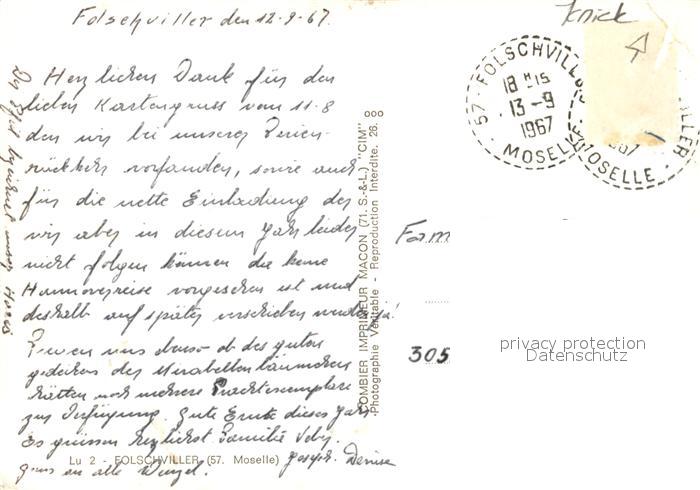 Folschviller den 12-9-67.
Knick
Herzlichen Dank für den
lieben Kartengruss vom 11-8
den wir bei unserer Ferien-
rückkehr vorfanden, sowie auch
für die nette Einladung der
wir aber in diesem Jahr leider
nicht folgen können da keine
Hannoverreise vorgesehen ist und
deshalb auf später verschieben werden
Freuen uns ebenso ob des guten
gedeihen des Mirabellenbäumchens
hätten noch mehrere Prachtexemplare
zur Verfügung. Gute Ernte dieses Jahr
Es grüssen herzlichst Familie
Joseph. Denise
gruss an alle
Der Pfeil unser Haus
Lu 2 - FOLSCHVILLER (57. Moselle)
COMBIER IMPRIMEUR MACON (71. S.-&-L.) "CIM"
Photographie Véritable - Reproduction Interdite. 26. 8
57 - FOLSCHVILLER
18 H 15
13 - 9
1967
MOSELLE
LLER
967
MOSELLE
Fam
305
privacy protection
Datenschutz